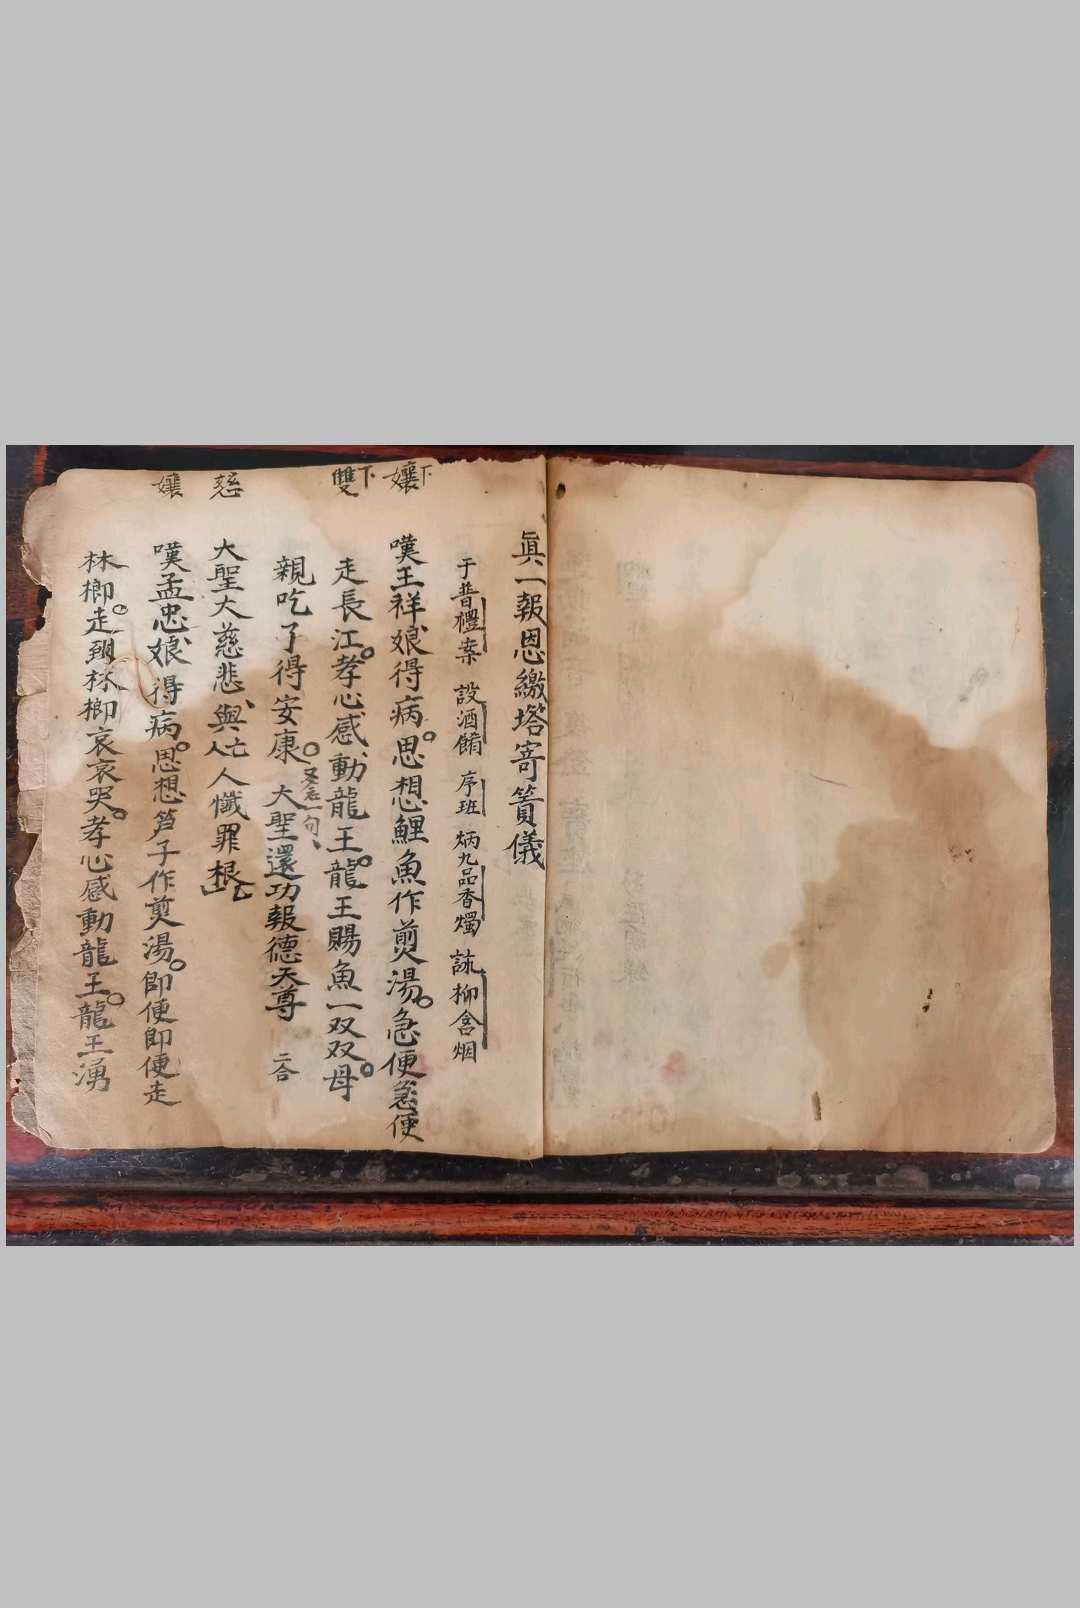 眞一報恩繳塔寄簣儀
于普禮案 設酒餚 序班 炳九品香燭 詠柳含烟
孃下
嘆王祥娘得病思想鯉魚作煎湯急便急便
雙下
走長江孝心感動龍王龍王賜魚一双双母
親吃了得安康 大聖還功報德天尊 二合
慈
大聖大慈悲與亡人人懺罪根
孃
嘆孟忠娘得病思想笋子作煎湯即便即便走
林榔走到林榔哀哀哭孝心感動龍王龍王湧